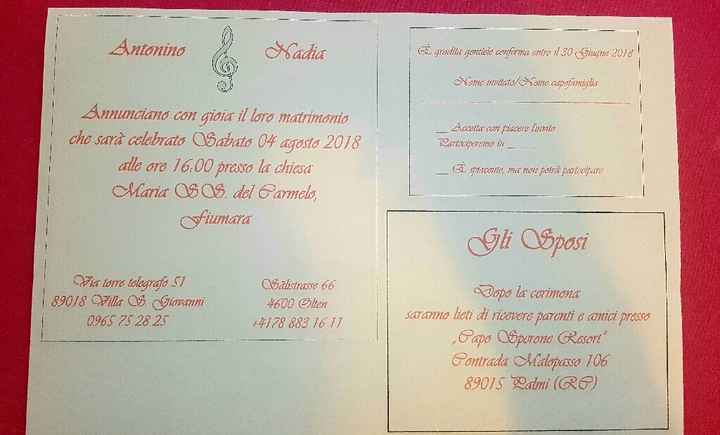 Antonino Nadia
Annunciano con gioia il loro matrimonio
che sarà celebrato Sabato 04 agosto 2018
alle ore 16:00 presso la chiesa
Maria SS. del Carmelo,
Fiumara
Via torre telegrafo 51
89018 Villa S. Giovanni
0965 75 28 25
Sälistrasse 66
4600 Olten
+4178 883 16 11
È gradita gentile conferma entro il 30 Giugno 2018
Nome invitato/Nome capofamiglia
__ Accetta con piacere l'invito
Parteciperemo in __ __
__ È spiacente, ma non potrà partecipare
Gli Sposi
Dopo la cerimonia
saranno lieti di ricevere parenti e amici presso
„Capo Sperone Resort"
Contrada Malopasso 106
89015 Palmi (RC)